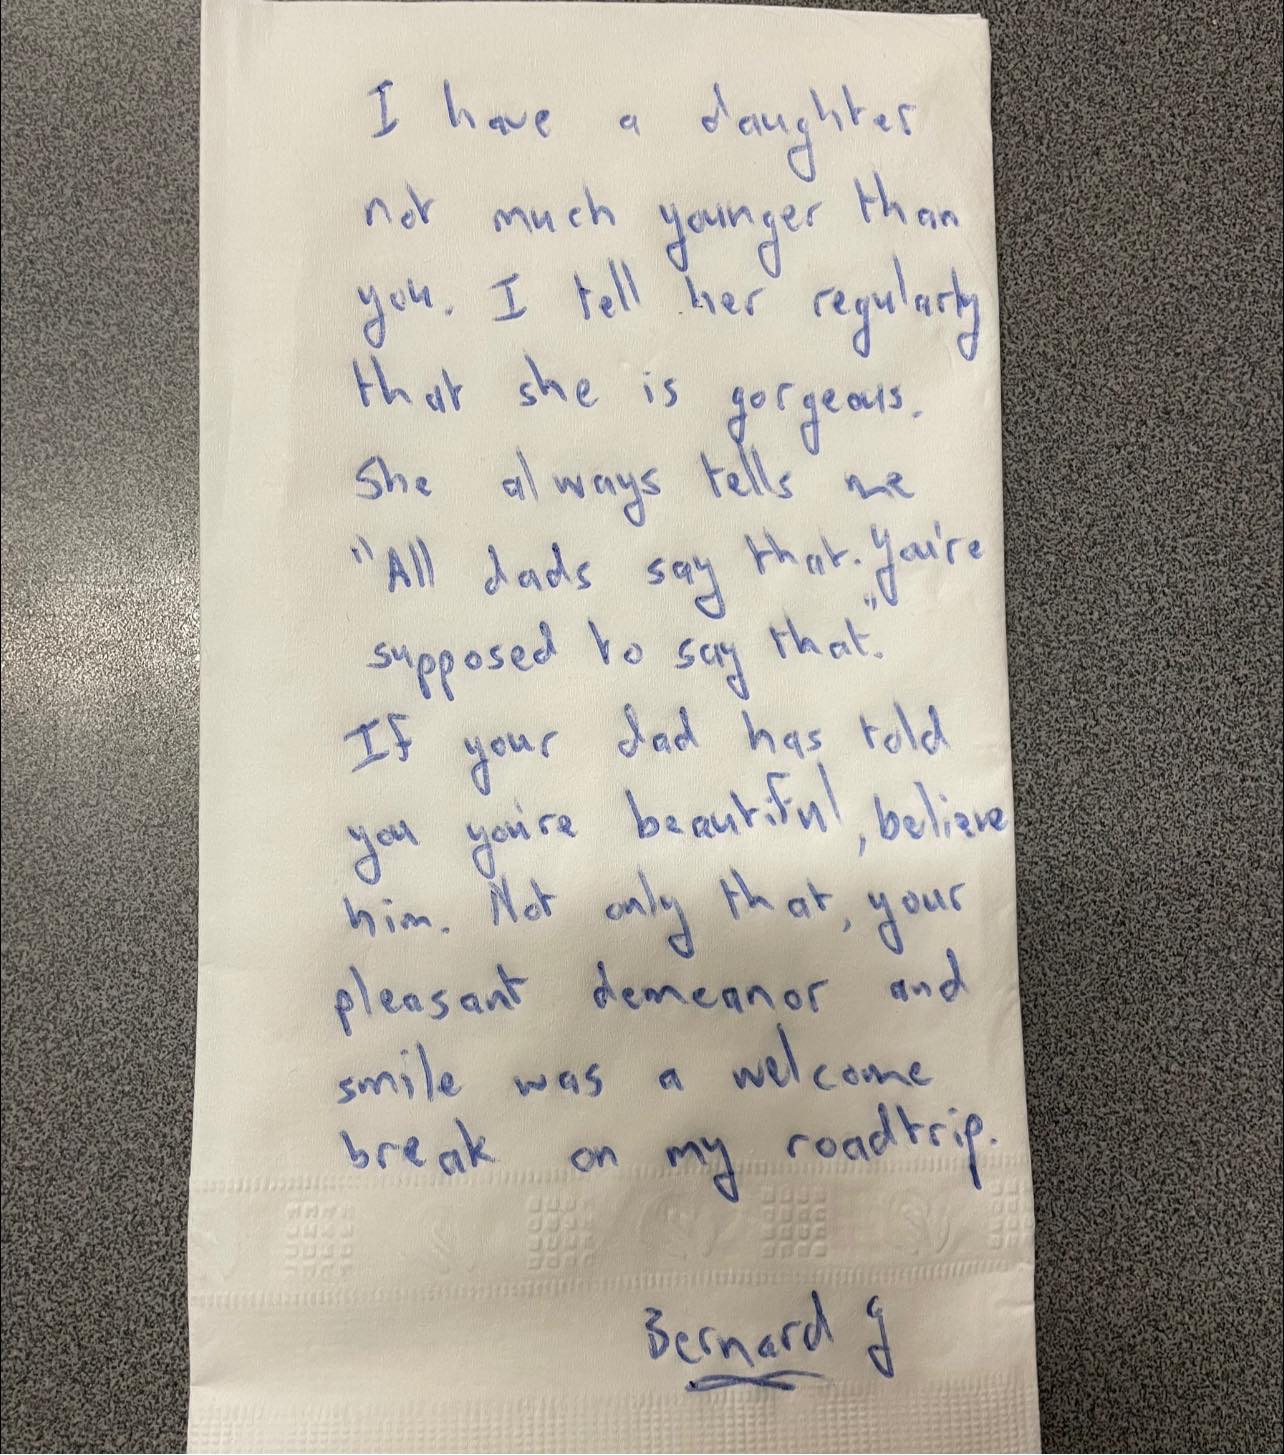 I have a daughter
not much younger than
you. I tell her regularly
that she is gorgeous.
She always tells me
"All dads say that. You're
supposed to say that."
If your dad has told
you you're beautiful, believe
him. Not only that, your
pleasant demeanor and
smile was a welcome
break on my roadtrip.
Bernard G